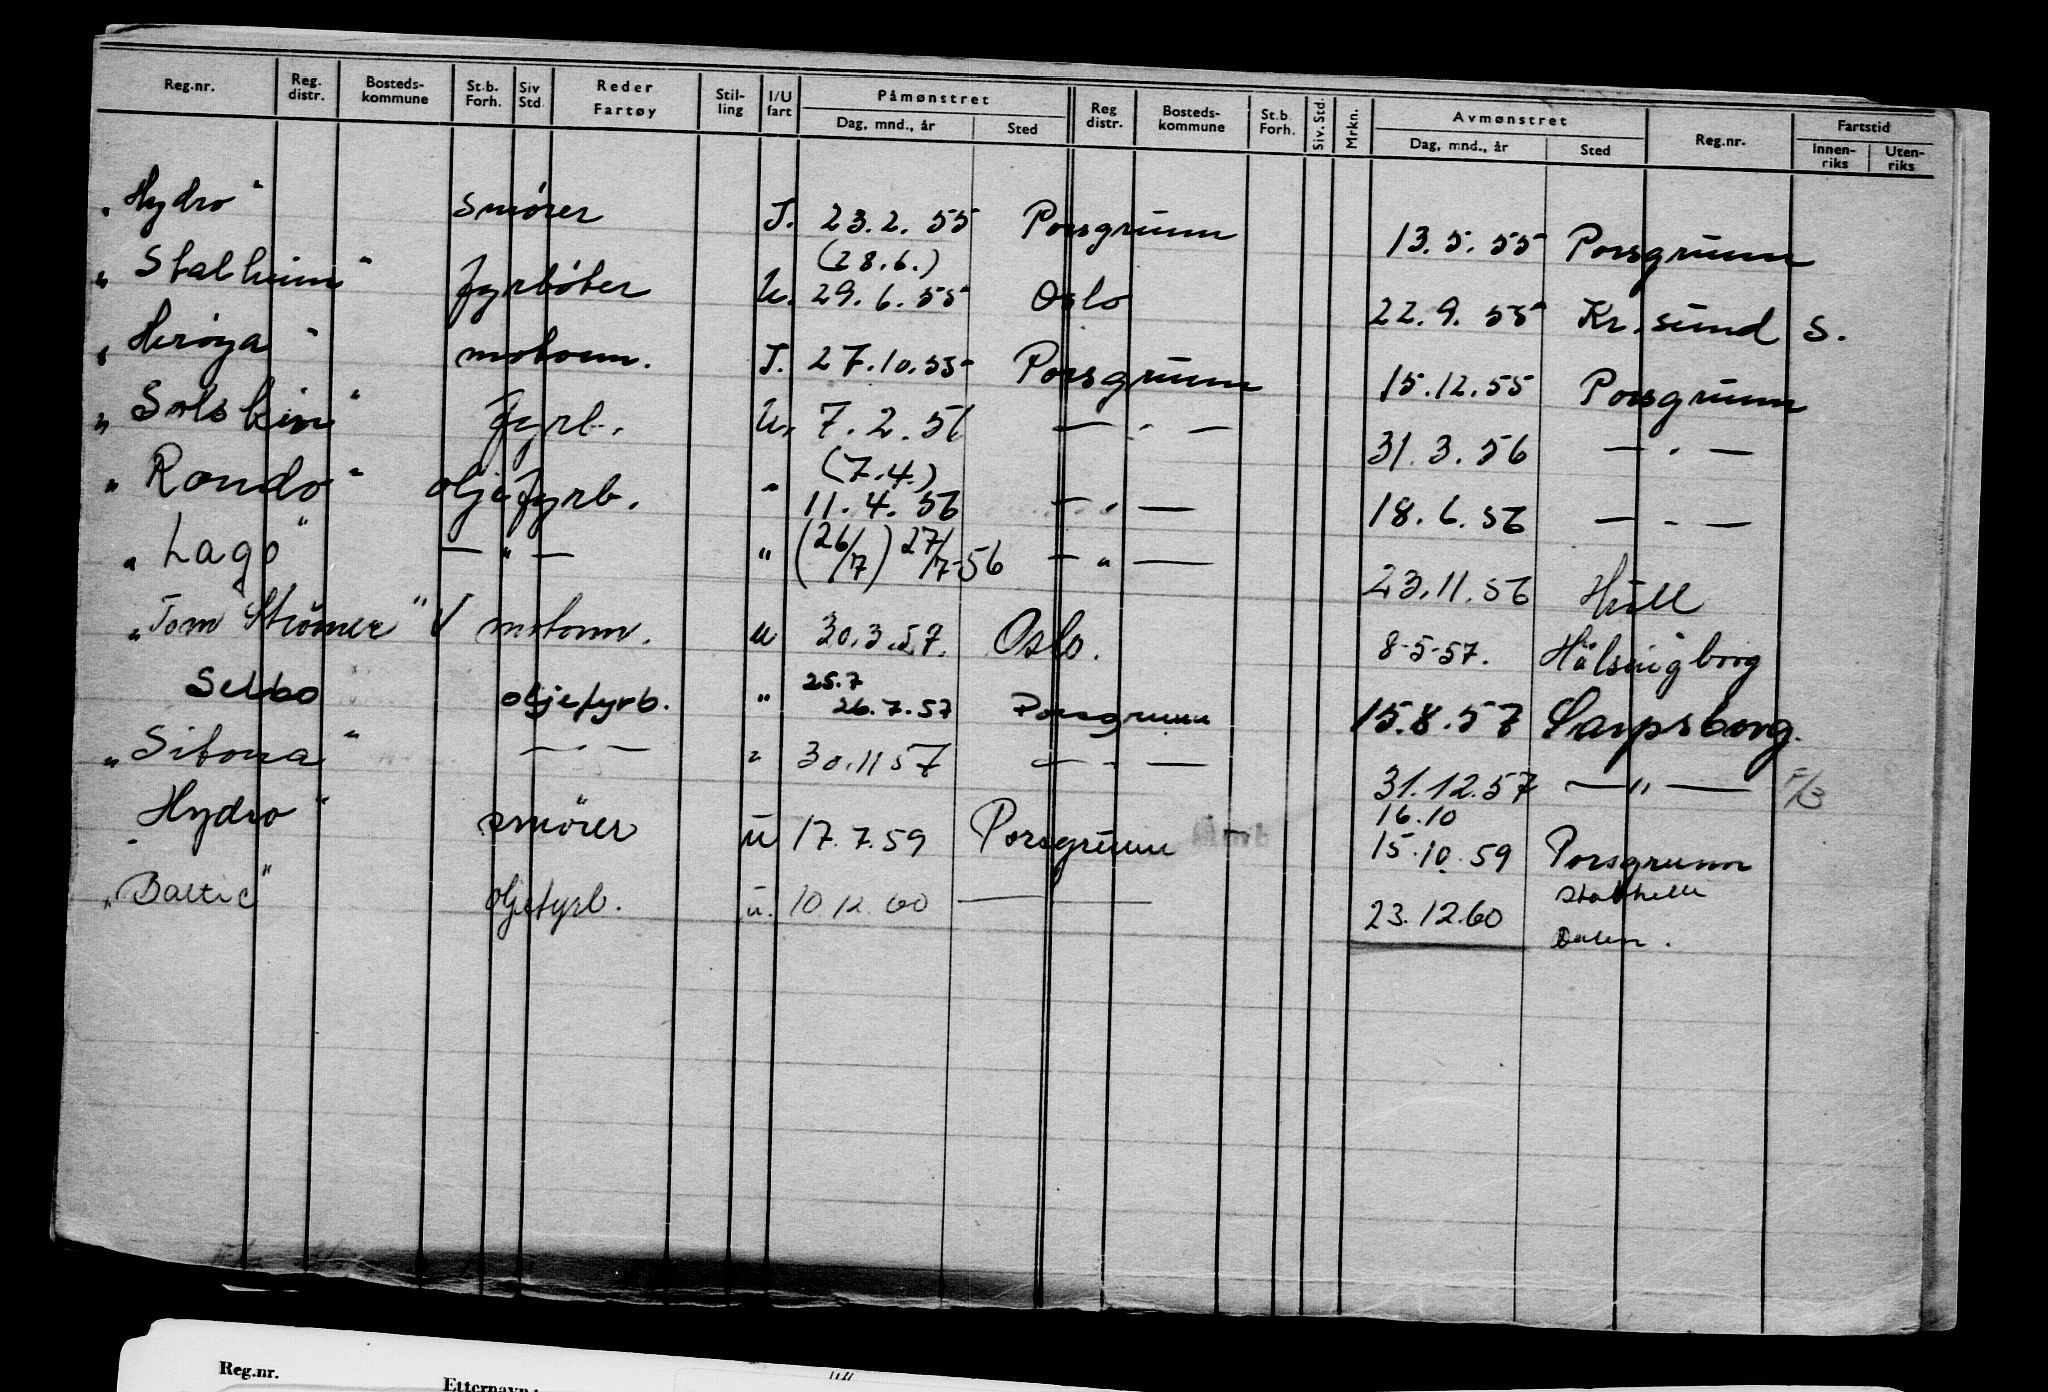 Reg.nr. Reg. distr. Bosteds-kommune St.b. Forh. Siv Std. Reder Fartøy Stil-ling I/U fart Påmønstret Dag, mnd., år Sted Reg distr. Bosteds-kommune St.b. Forh. Siv. Std. Mrkn. Avmønstret Dag, mnd., år Sted Reg.nr. Fartstid Innen-riks Uten-riks
"Hydro" smører I. 23.2.55 Porsgrunn 13.5.55 Porsgrunn
(28.6.)
"Stalheim" fyrbøter U. 29.6.55 Oslo 22.9.55 Kr.sund S.
"Herøya" motorm. I. 27.10.55 Porsgrunn 15.12.55 Porsgrunn
"Solskin" fyrb. U. 7.2.56 — " — 31.3.56 — " —
(7.4.)
"Rondo" oljefyrb. " 11.4.56 — " — 18.6.56 — " —
"Lago" — " — " (26/7) 27/7-56 — " — 23.11.56 Hull
"Tom Strömer" V motorm. u 30.3.57. Oslo. 8-5-57. Hälsingborg
25.7
Selbo oljefyrb. " 26.7.57 Porsgrunn 15.8.57 Sarpsborg.
"Sitona" — " — " 30.11 57 — " — 31.12.57 — " — F/3
16.10
"Hydro" smører u 17.7.59 Porsgrunn 15.10.59 Porsgrunn
Stathelle
"Baltic" oljefyrb. u. 10 12. 60 — — 23.12.60
Dalen.
Reg.nr.
Etternavn